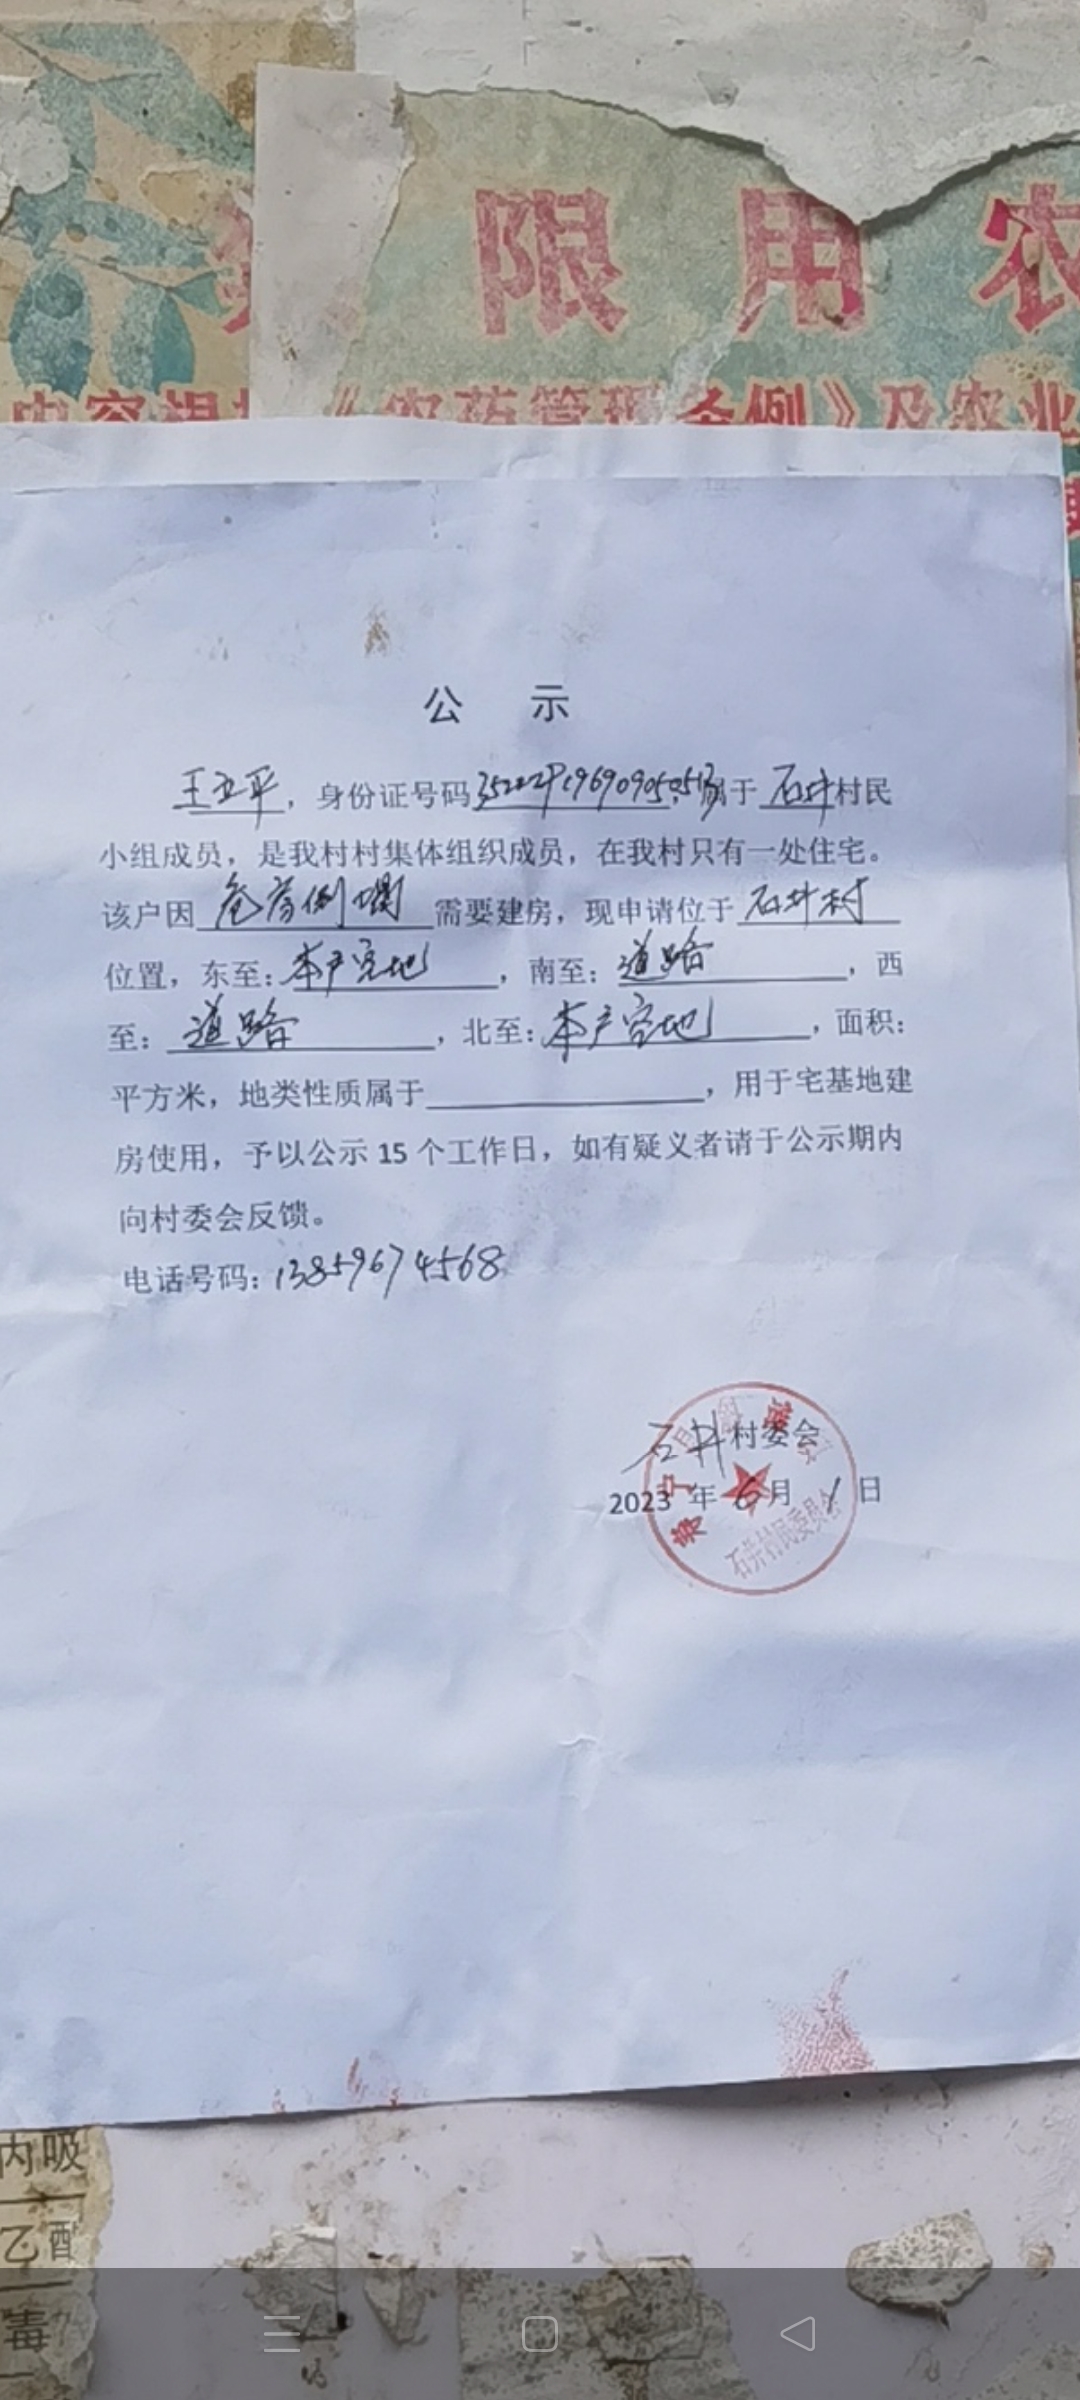 限用农
《农药管理条例》及农业
公 示
王五平，身份证号码 属于石井村民
小组成员，是我村村集体组织成员，在我村只有一处住宅。
该户因危房倒塌需要建房，现申请位于石井村
位置，东至：本户空地，南至：道路，西
至：道路，北至：本户空地，面积：
平方米，地类性质属于 ，用于宅基地建
房使用，予以公示 15 个工作日，如有疑义者请于公示期内
向村委会反馈。
电话号码：13859674568
石井村委会
2023 年 6 月 1 日
石井村民委员会
内吸
乙酉
毒